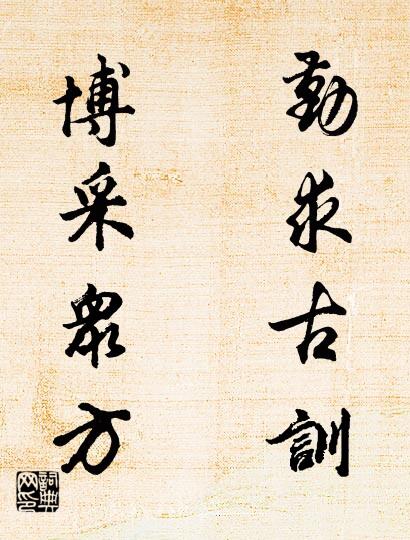 勤求古訓
博采眾方
詞典网